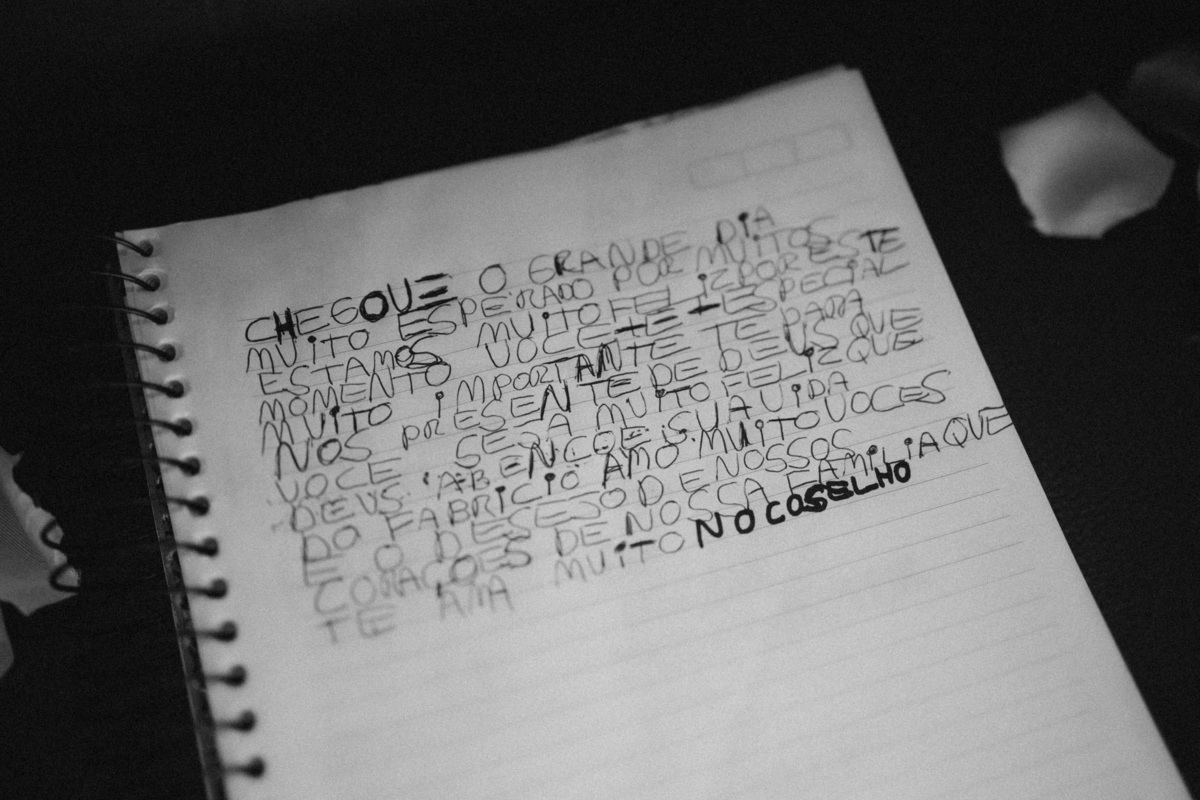 CHEGOUE O GRANDE DIA
MUITO ESPERADO POR MUITOS
ESTAMOS MUITO FELIZ POR ESTE
MOMENTO VOCE ESPECIAL
MUITO IMPORTANTE TE PARA
NOS PRESENTE DE DEUS QUE
VOCE SEJA MUITO FELIZ QUE
DEUS ABENCOE SUA VIDA
DO FABRICIO AMO MUITO VOCES
E O DESESO DE NOSSOS
CORACOES DE NOSSA FAMILIA QUE
TE AMA MUITO NO COSELHO